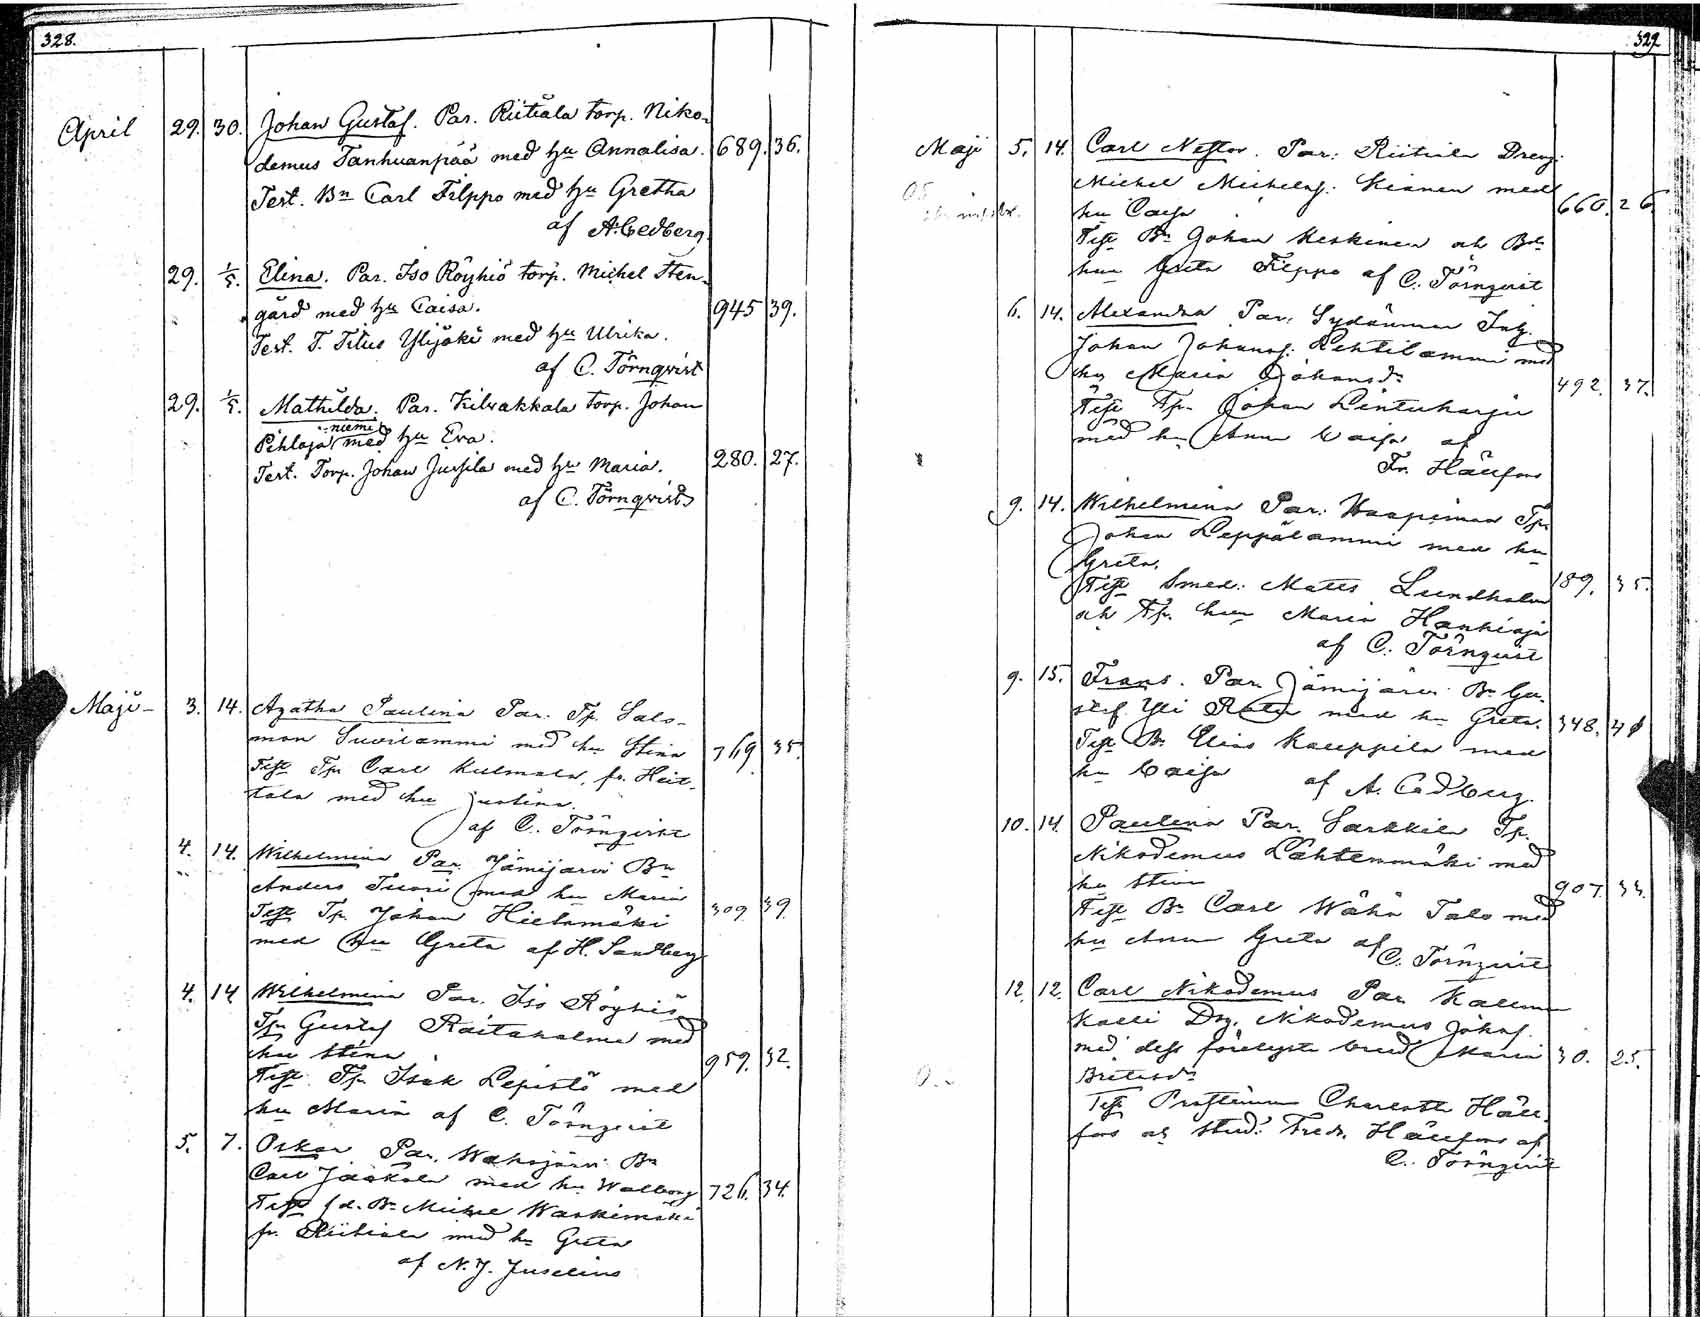 328.
April 29. 30. Johan Gustaf. Par. Riitiala torp. Niko-
demus Tanhuanpää med hu Annalisa. 689. 36.
Test. Bn Carl Filppo med hu Gretha
af A. Cedberg.
29. 1/5. Elina. Par. Iso Röyhiö torp. Michel Sten-
gård med hu Caisa. 945 39.
Test. T. Titus Ylijöki med hu Ulrika.
af C. Törnqvist
29. 1/5. Mathilda. Par. Kilvakkala torp. Johan
niemi
Pihlaja med hu Eva.
Test. Torp. Johan Jussila med hu Maria. 280. 27.
af C. Törnqvist
Maji 3. 14. Agatha Paulina Par. Tp. Salo-
mon Suvilammi med hu Stina 769 35.
Test Tp. Carl Kulmala, fr. Heit-
tola med hu Justina.
af C. Törnqvist
4. 14. Wilhelmina Par. Jämijärvi Bn
Anders Tuori med hu Maria
Test Tp. Johan Hietamäki 309. 39.
med hu Greta af H. Sandberg
4. 14 Wilhelmina Par. Iso Röyhiö
Tp. Gustaf Raitaholma med
hu Stina 959. 32.
Test. Tp. Isak Lepistö med
hu Maria af C. Törnqvist
5. 7. Oskar Par. Wahojärvi Bn
Carl Jaakola med hu Walborg 726. 34.
Test f.d. Bn Michel Waskimäki
fr. Riitiala med hu Greta
af N. J. Juselius
329
Maji 5. 14. Carl Nestor. Par: Riitiala Dreng.
Michel Michelss. Kianen med
hu Caisa 660. 26.
Test Bn Johan Keskinen och Bde
hun Greta Filppo af C. Törnqvist
6. 14. Alexandra Par. Sydänmaa Inh.
Johan Johanss. Lehtilammi med
hu Maria Johansdr 492. 37.
Test Tp. Johan Lintuharju
med hu Anna Caisa af
Fr. Hällfors
9. 14. Wilhelmina Par: Haapimaa Tp.
Johan Leppälammi med hu
Greta. 189. 35.
Test Smed. Matts Lundholm
och Tp. hun Maria Hankioja
af C. Törnqvist
9. 15. Frans. Par. Jämijärvi Bn Gu-
staf Yli Rata med hu Greta. 348.
Test Bn Elias Kauppila med
hu Caisa af A. Cedberg.
10. 14. Paulina Par. Sarkkila Tp.
Nikodemus Lähteenmäki med
hu Stina 907. 33.
Test Bn Carl Wähä Talo med
hu Anna Greta af
C. Törnqvist
12. 12. Carl Nikodemus Par
Kalli Dreng. Nikodemus Johss.
med dess förelyste brud Maria 30. 25.
Test Prostinnan Charlotta Häll-
fors och Stud. Fredr. Hällfors af
C. Törnqvist